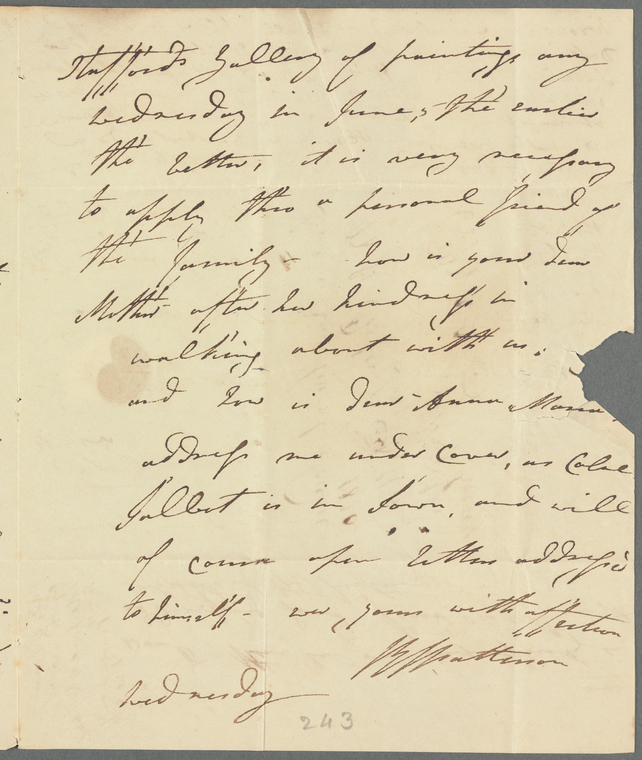 Stafford's Gallery of paintings any
wednesday in June, the earlier
the better, it is very necessary
to apply thro a personal friend of
the family - how is your dear
Mother after her kindness in
walking about with us.
and how is dear Anna Maria,
address me under Cover, as Colnl
Talbot is in Town, and will
of course open letters address'd
to himself - ever, yours with affection
Patterson
wednesday
243